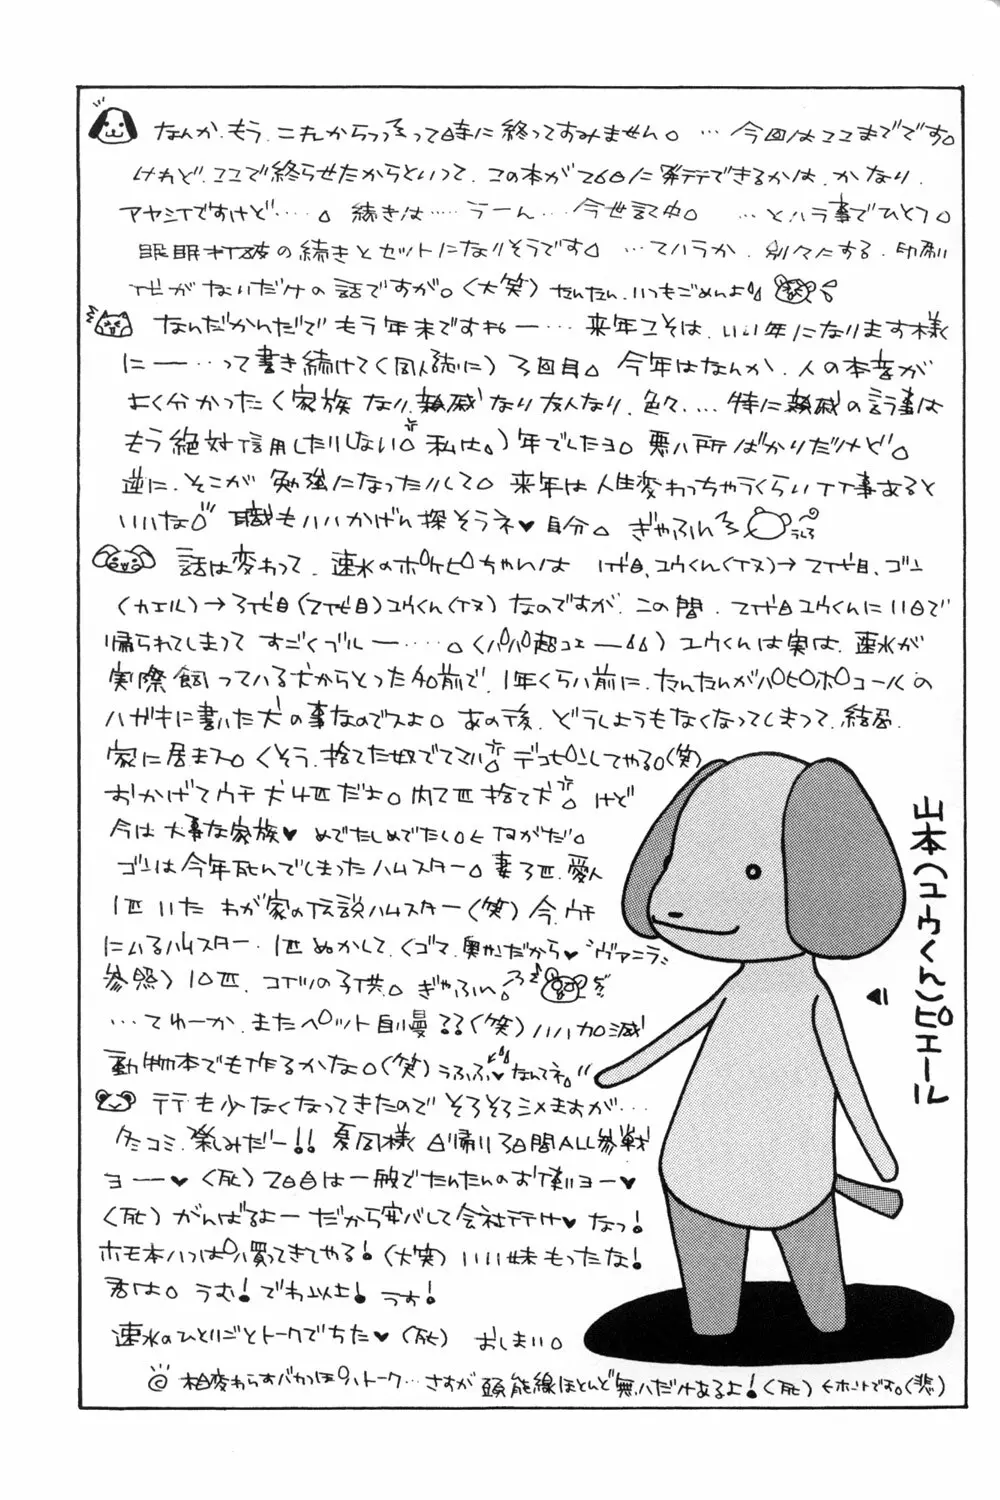 なんか、もう、これからっつって時に終ってすみません。…今回はここまでです。
けれど、ここで終らせたからといって、この本が26日に発行できるかは、かなり、
アヤシイですけど……。続きは……うーん…今世記中。…とハラ事でひとつ。
眠眠打破の続きとセットになりそうです。…てハラか、別々にする、印刷
代がないだけの話ですが。(大笑)たんたん、いつもごめんよ
なんだかんだで もう年末ですねー…来年こそは、いい年になります様
にー…って書き続けて(同人誌に)3回目。今年はなんか、人の本音が
よく分かった(家族なり、親戚なり友人なり、色々…特に親戚の言う事は
もう絶対信用したりしない。私は。)年でしたヨ。悪い所ばかりだけど。
逆に、そこが勉強になったりして。来年は人生変わっちゃうくらいイイ事あると
いいな。職もいいかげん探そうネ♥自分。ぎゃふん
話は変わって、速水のポケピちゃんは 1代目、ユウくん(イヌ)→2代目、ゴン
(カエル)→3代目(2代目)ユウくん(イヌ)なのですが、この間、2代目ユウくんに11日で
帰られてしまって すごくブルー……。(パパ超コエー)ユウくんは実は、速水が
実際飼っている犬からとった名前で、1年くらい前に、たんたんがパピポコールの
ハガキに書いた犬の事なのでスよ。あの後、どうしようもなくなってしまって、結局、
家に居まス。(くそう、捨てた奴でてこい。デコピンしてやる。(笑)
おかげでウチ犬4匹だよ。内2匹捨て犬。けど
今は大事な家族♥めでたしめでたし。←ながだ。
ゴンは今年死んでしまったハムスター。妻3匹、愛人
1匹いた わが家の伝説ハムスター(笑)今、ウチ
にいるハムスター、1匹ぬかして、(ゴマ、奥かだから♥"ヴァニラ"
参照)10匹、コイツの子供。ぎゃふん。
…てゆーか、またペット自慢??(笑)いい加減
動物本でも作るかな。(笑)うふふ♥なんてネ。
行も少なくなってきたので そろそろシメますが…
冬コミ、楽しみだー!!夏同様 日帰り3日間ALL参戦
ヨー♥(死)2日目は一般でたんたんのお使いヨー♥
(死)がんばるよー だから安パして会社行け♥なっ!
ホモ本いっぱい買ってきてやる!(大笑)いい妹もったな!
君は。うむ!でわ以上!うす!
速水のひとりごとトークでちた♥(死)おしまい。
◎相変わらずバカっぽいトーク…さすが頭能線ほとんど無いだけあるよ!(死)←ホントです。(悲)
山本(ユウくん)ピエール